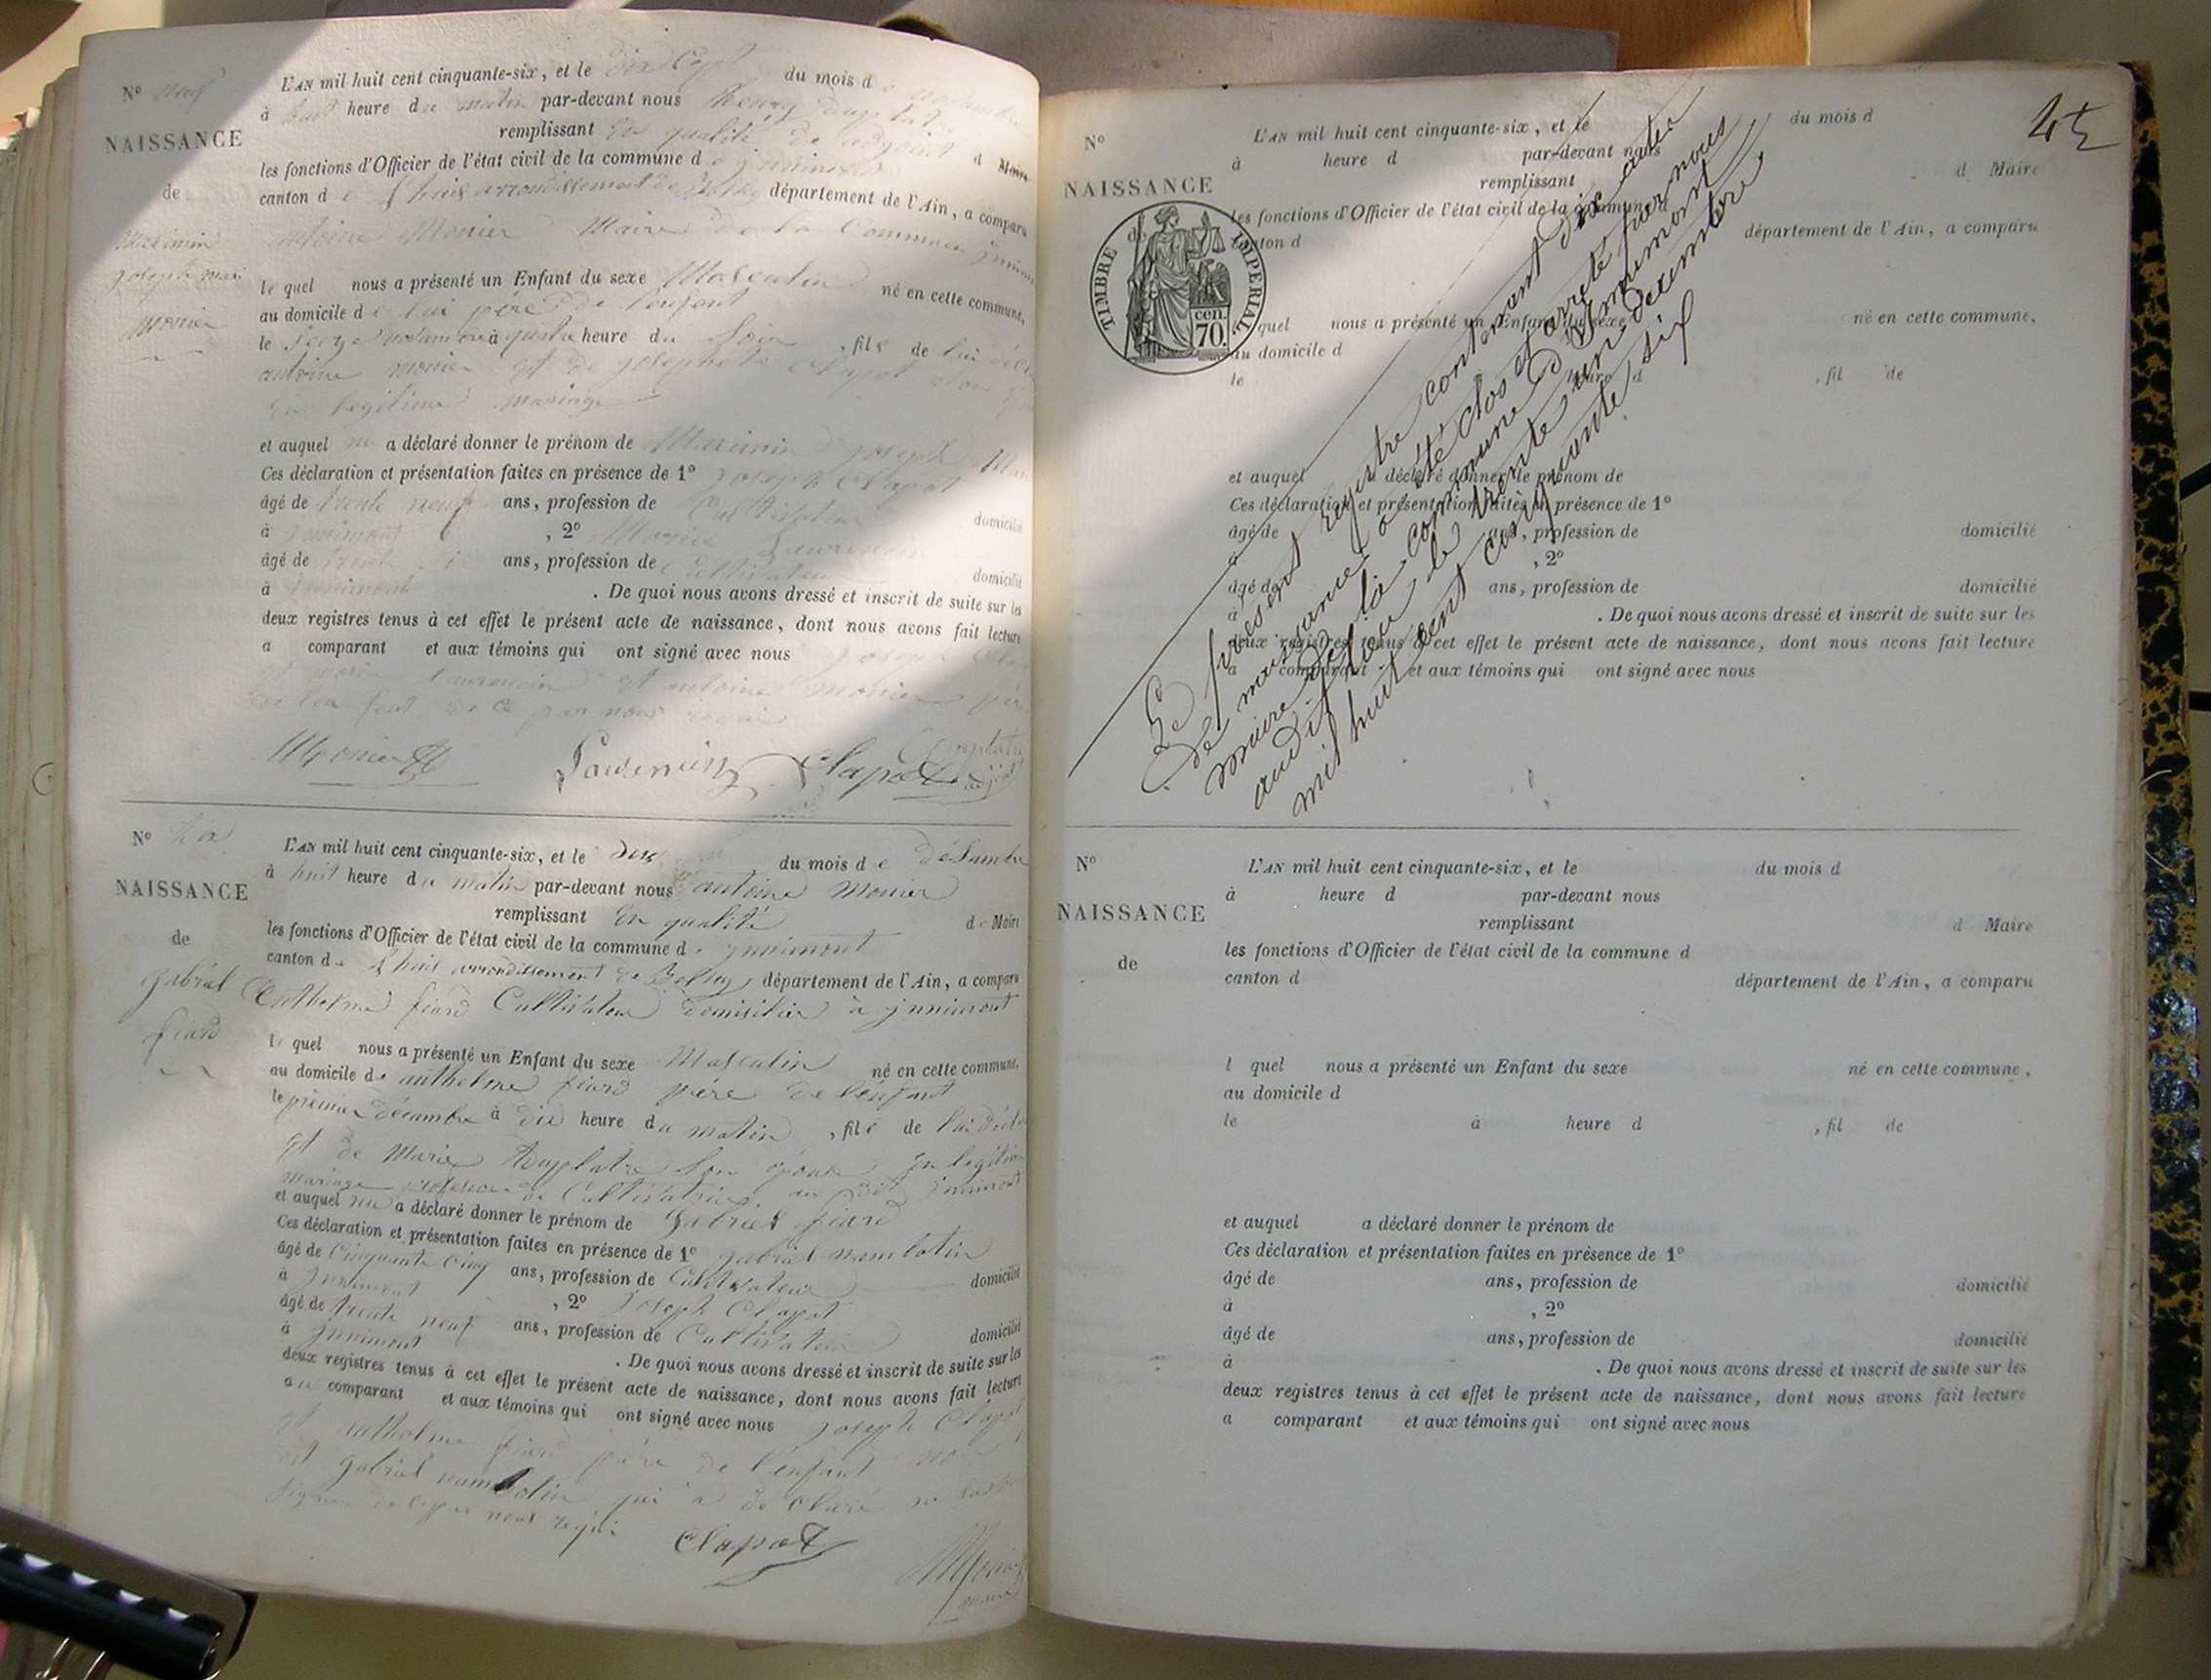 N° neuf
NAISSANCE
de
Maximin
joseph mari
monier
L'AN mil huit cent cinquante-six, et le dix Cept du mois de novambre
à huit heure du matin par-devant nous
remplissant En qualité de adjoint d Maire
les fonctions d'Officier de l'état civil de la commune de jnnimont
canton de Lhuis arrondissement de Belley département de l'Ain, a comparu
antoine Monier Maire de la Commune jnnimont
le quel nous a présenté un Enfant du sexe Masculin né en cette commune,
au domicile de lui père de l'enfant
le seize novambre à quatre heure du Soir , fils de lui
antoine monier et de josephete Clapot
En legitime mariage
et auquel a déclaré donner le prénom de Maximin joseph Mari
Ces déclaration et présentation faites en présence de 1° joseph Clapot
âgé de trente neuf ans, profession de Cultivateur domicilié
à jnnimont , 2°
âgé de trente ans, profession de Cultivateur domicilié
à jnnimont . De quoi nous avons dressé et inscrit de suite sur les
deux registres tenus à cet effet le présent acte de naissance, dont nous avons fait lecture
a comparant et aux témoins qui ont signé avec nous joseph
et antoine monier père
de l'enfant de ce par nous requi
Monier Clapot adjoint
N° dix
NAISSANCE
de
gabriel
fiard
L'AN mil huit cent cinquante-six, et le deux du mois de désambre
à huit heure du matin par-devant nous antoine Monier
remplissant En qualité de Maire
les fonctions d'Officier de l'état civil de la commune de jnnimont
canton de Lhuis arrondissement de Belley, département de l'Ain, a comparu
Enthelme fiard Cultivateur domicilier à jnnimont
le quel nous a présenté un Enfant du sexe Masculin né en cette commune,
au domicile de anthelme fiard père de l'enfant
le premier décambre à dix heure du matin , fils de lui
et de Marie Duplatre Son épouse En legitime
mariage profession de Cultivatrice au dit jnnimont
et auquel a déclaré donner le prénom de gabriel fiard
Ces déclaration et présentation faites en présence de 1° gabriel nambotin
âgé de Cinquante cinq ans, profession de Cultivateur domicilié
à jnnimont , 2° Joseph Clapot
âgé de trente neuf ans, profession de Cultivateur domicilié
à jnnimont . De quoi nous avons dressé et inscrit de suite sur les
deux registres tenus à cet effet le présent acte de naissance, dont nous avons fait lecture
au comparant et aux témoins qui ont signé avec nous joseph Clapot
et anthelme fiard père de l'enfant non
et gabriel nambotin qui a de claré ne
signer de ce par nous requi
Clapot
Monier
maire
45
N°
NAISSANCE
de
TIMBRE IMPERIAL
70 cen.
L'AN mil huit cent cinquante-six, et le du mois d
à heure d par-devant nous
remplissant d Maire
les fonctions d'Officier de l'état civil de la commune d
canton d département de l'Ain, a comparu
l quel nous a présenté un Enfant du sexe né en cette commune,
au domicile d
le à heure d , fil de
et auquel a déclaré donner le prénom de
Ces déclaration et présentation faites en présence de 1°
âgé de ans, profession de domicilié
à , 2°
âgé de ans, profession de domicilié
à . De quoi nous avons dressé et inscrit de suite sur les
deux registres tenus à cet effet le présent acte de naissance, dont nous avons fait lecture
a comparant et aux témoins qui ont signé avec nous
Le présent registre contenant dix actes
de naissance a été clos et arreté par nous
maire de la commune d'Innimont
audit lieu le trente un decembre
mil huit cent cinquante six
N°
NAISSANCE
de
L'AN mil huit cent cinquante-six, et le du mois d
à heure d par-devant nous
remplissant d Maire
les fonctions d'Officier de l'état civil de la commune d
canton d département de l'Ain, a comparu
l quel nous a présenté un Enfant du sexe né en cette commune,
au domicile d
le à heure d , fil de
et auquel a déclaré donner le prénom de
Ces déclaration et présentation faites en présence de 1°
âgé de ans, profession de domicilié
à , 2°
âgé de ans, profession de domicilié
à . De quoi nous avons dressé et inscrit de suite sur les
deux registres tenus à cet effet le présent acte de naissance, dont nous avons fait lecture
a comparant et aux témoins qui ont signé avec nous